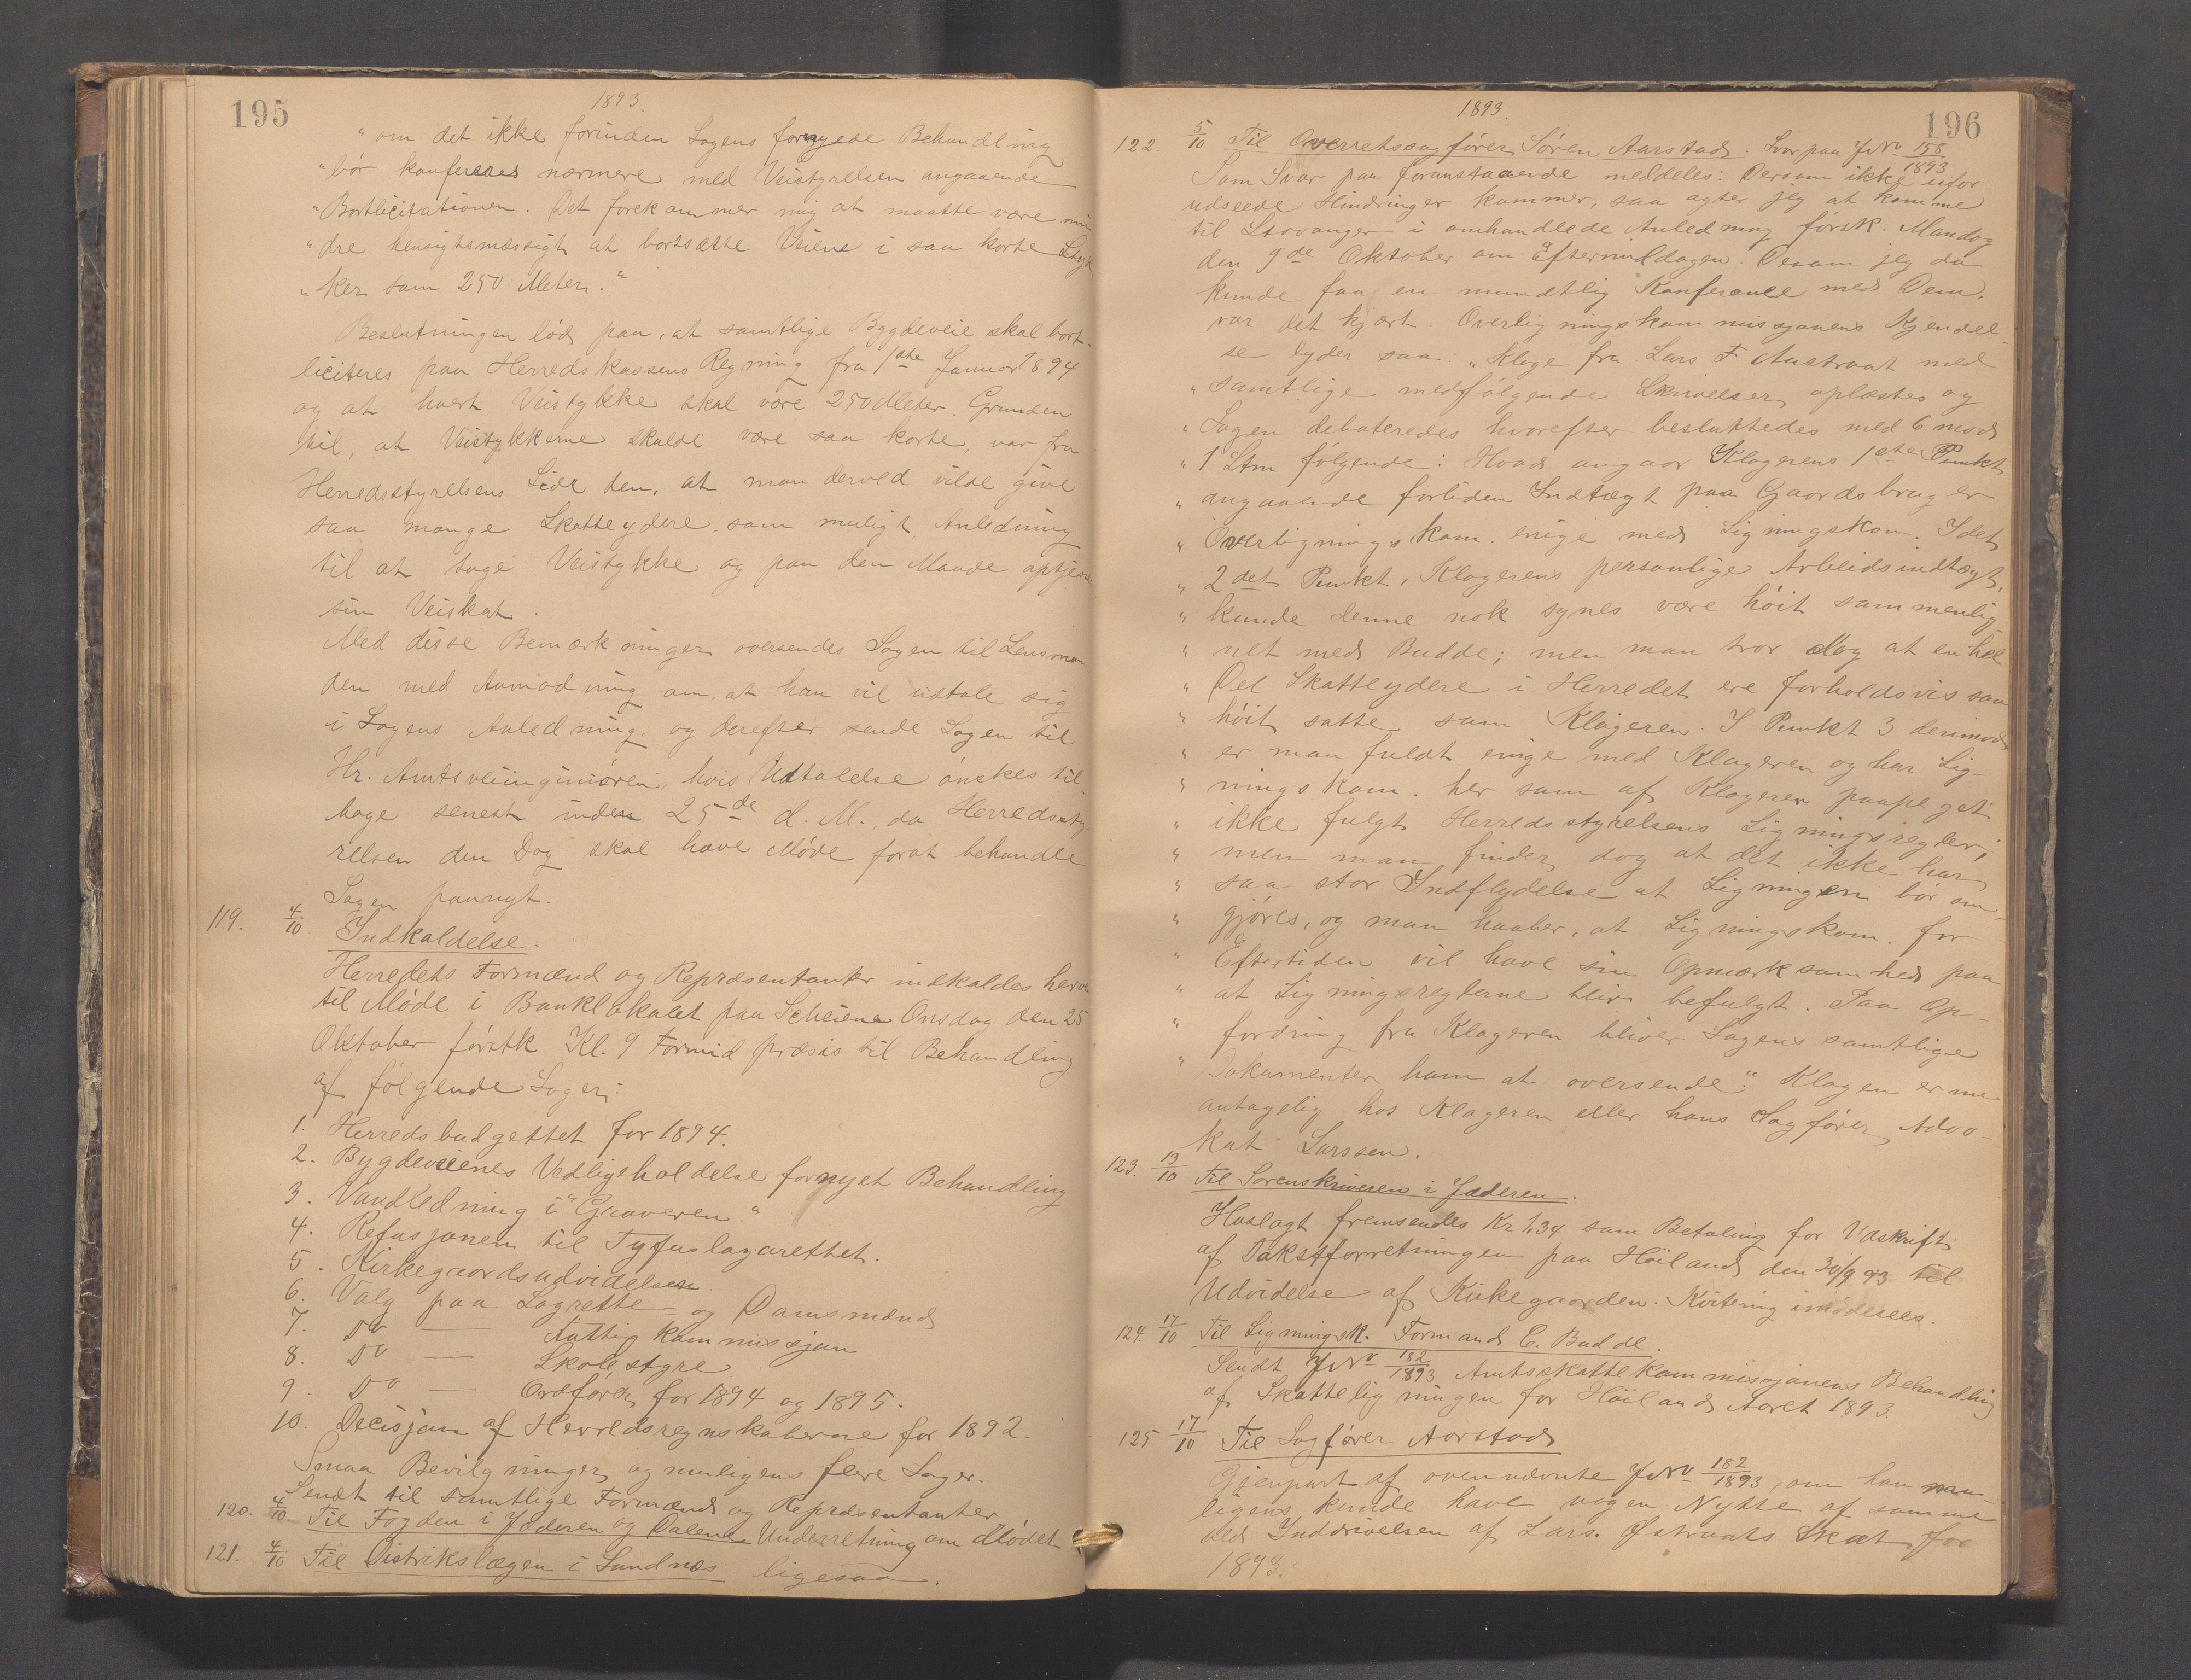 195
1893.
"om det ikke forinden Sagens fornyede Behandling
"bör konfereres nærmere med Veistyrelsen angaaende
"Bortlicitationen. Det forekommer mig at maatte være min
"dre hensigtsmæssigt at bortsætte Veiene i saa korte Styk
"ker som 250 Meter."
Beslutningen löd paa, at samtlige Bygdeveie skal bort-
liciteres paa Herredskassens Regning fra 1ste Januar 1894
og at hvert Veistykke skal være 250 Meter. Grunden
til, at Veistykkerne skulde være saa korte, var fra
Herredsstyrelsens Side den, at man derved vilde give
saa mange Skatteydere som muligt Anledning
til at tage Veistykke og paa den Maade optjene
sin Veiskat.
Med disse Bemærkninger oversendes Sagen til Lensman-
den med Anmodning om, at han vil udtale sig
i Sagens Anledning og derefter sende Sagen til
Hr. Amtsveiingeniören, hvis Udtalelse önskes til-
bage senest inden 25de d. M., da Herredssty-
relsen den Dag skal have Möde forat behandle
Sagen paanyt.
119. 4/10 Indkaldelse.
Herredets Formænd og Repræsentanter indkaldes herved
til Möde i Banklokalet paa Scheiene Onsdag den 25
Oktober förstk Kl. 9 Formid præsis til Behandling
af fölgende Sager:
1. Herredsbudgettet for 1894.
2. Bygdeveienes Vedligeholdelse fornyet Behandling
3. Vandledning i "Graveren."
4. Refusjonen til Tyfuslazarettet.
5. Kirkegaardsudvidelsen.
6. Valg paa Lagrette- og Domsmænd
7. Do — Fattigkommissjon
8. Do — Skolestyre
9. Do — Ordförer for 1894 og 1895.
10. Decisjon af Herredsregnskaberne for 1892.
Smaa Bevilgninger og muligens flere Sager.
Sendt til samtlige Formænd og Repræsentanter
120. 4/10. Til Fogden i Jæderen og Dalene Underretning om Mödet
121. 4/10 Til Distriktslægen i Sandnæs ligesaa.
196
1893.
122. 5/10 Til Overretssagförer Sören Aarstad. Svar paa J.No 158/1893
Som Svar paa foranstaaende meddeles: Dersom ikke ufor-
udseede Hindringer kommer, saa agter jeg at komme
til Stavanger i omhandlede Anledning förstk. Mandag
den 9de Oktober om Eftermiddagen. Desom jeg da
kunde faa en mundtlig Konferance med Dem,
var det kjært. Overligningskommissjonens Kjendel-
se lyder saa: "Klage fra Lars T Austraat med
"samtlige medfölgende Skrivelser oplæstes og
"Sagen debateredes hvorefter besluttedes med 6 mod
"1 Stm fölgende: Hvad angaar Klagerens 1ste Punkt
"angaaende forliden Indtægt paa Gaardsbrug er
"Overligningskom. enige med Ligningskom. I det
"2det Punkt, Klagerens personlige Arbeidsindtægt,
"kunde denne nok synes være höit sammenlig-
"net med Budde; men man tror dog at en hel
"Del Skatteydere i Herredet ere forholdsvis saa
"höit satte som Klageren. I Punkt 3 derimod
"er man fuldt enige med Klageren og har Lig-
"ningskom. her som af Klageren paapeget
"ikke fulgt Herredsstyrelsens Ligningsregler;
"men man finder dog at det ikke har
"saa stor Indflydelse at Ligningen bör om-
"gjöres, og man haaber, at Ligningskom. for
"Eftertiden vil have sin Opmærksomhed paa
"at Ligningsreglerne blir befulgt. Paa Op-
"fordring fra Klageren bliver Sagens samtlige
"Dokumenter ham at oversende". Klagen er nu
antagelig hos Klageren eller hans Sagförer, Advo-
kat Larssen.
123. 13/10 Til Sorenskriveren i Jæderen.
Hoslagt fremsendes Kr 1,34 som Betaling for Udskrift
af Takstforretningen paa Höiland den 30/9 93 til
Udvidelse af Kirkegaarden. Kvitering imödesees.
124. 17/10 Til Ligningsk. Formand C. Budde.
Sendt J.No 182/1893 Amtsskattekommissjonens Behandling
af Skatteligningen for Höiland Aaret 1893.
125 17/10 Til Sagförer Aarstad
Gjenpart af ovennævnte J.No 182/1893, om han mu-
ligens kunde have nogen Nytte af samme
ved Inddrivelsen af Lars Östraats Skat for
1893.